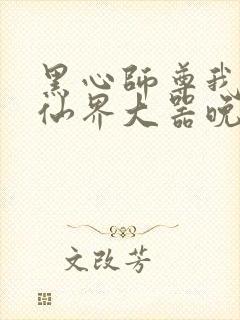 黑心师尊我
仙界大器晚
文改芳